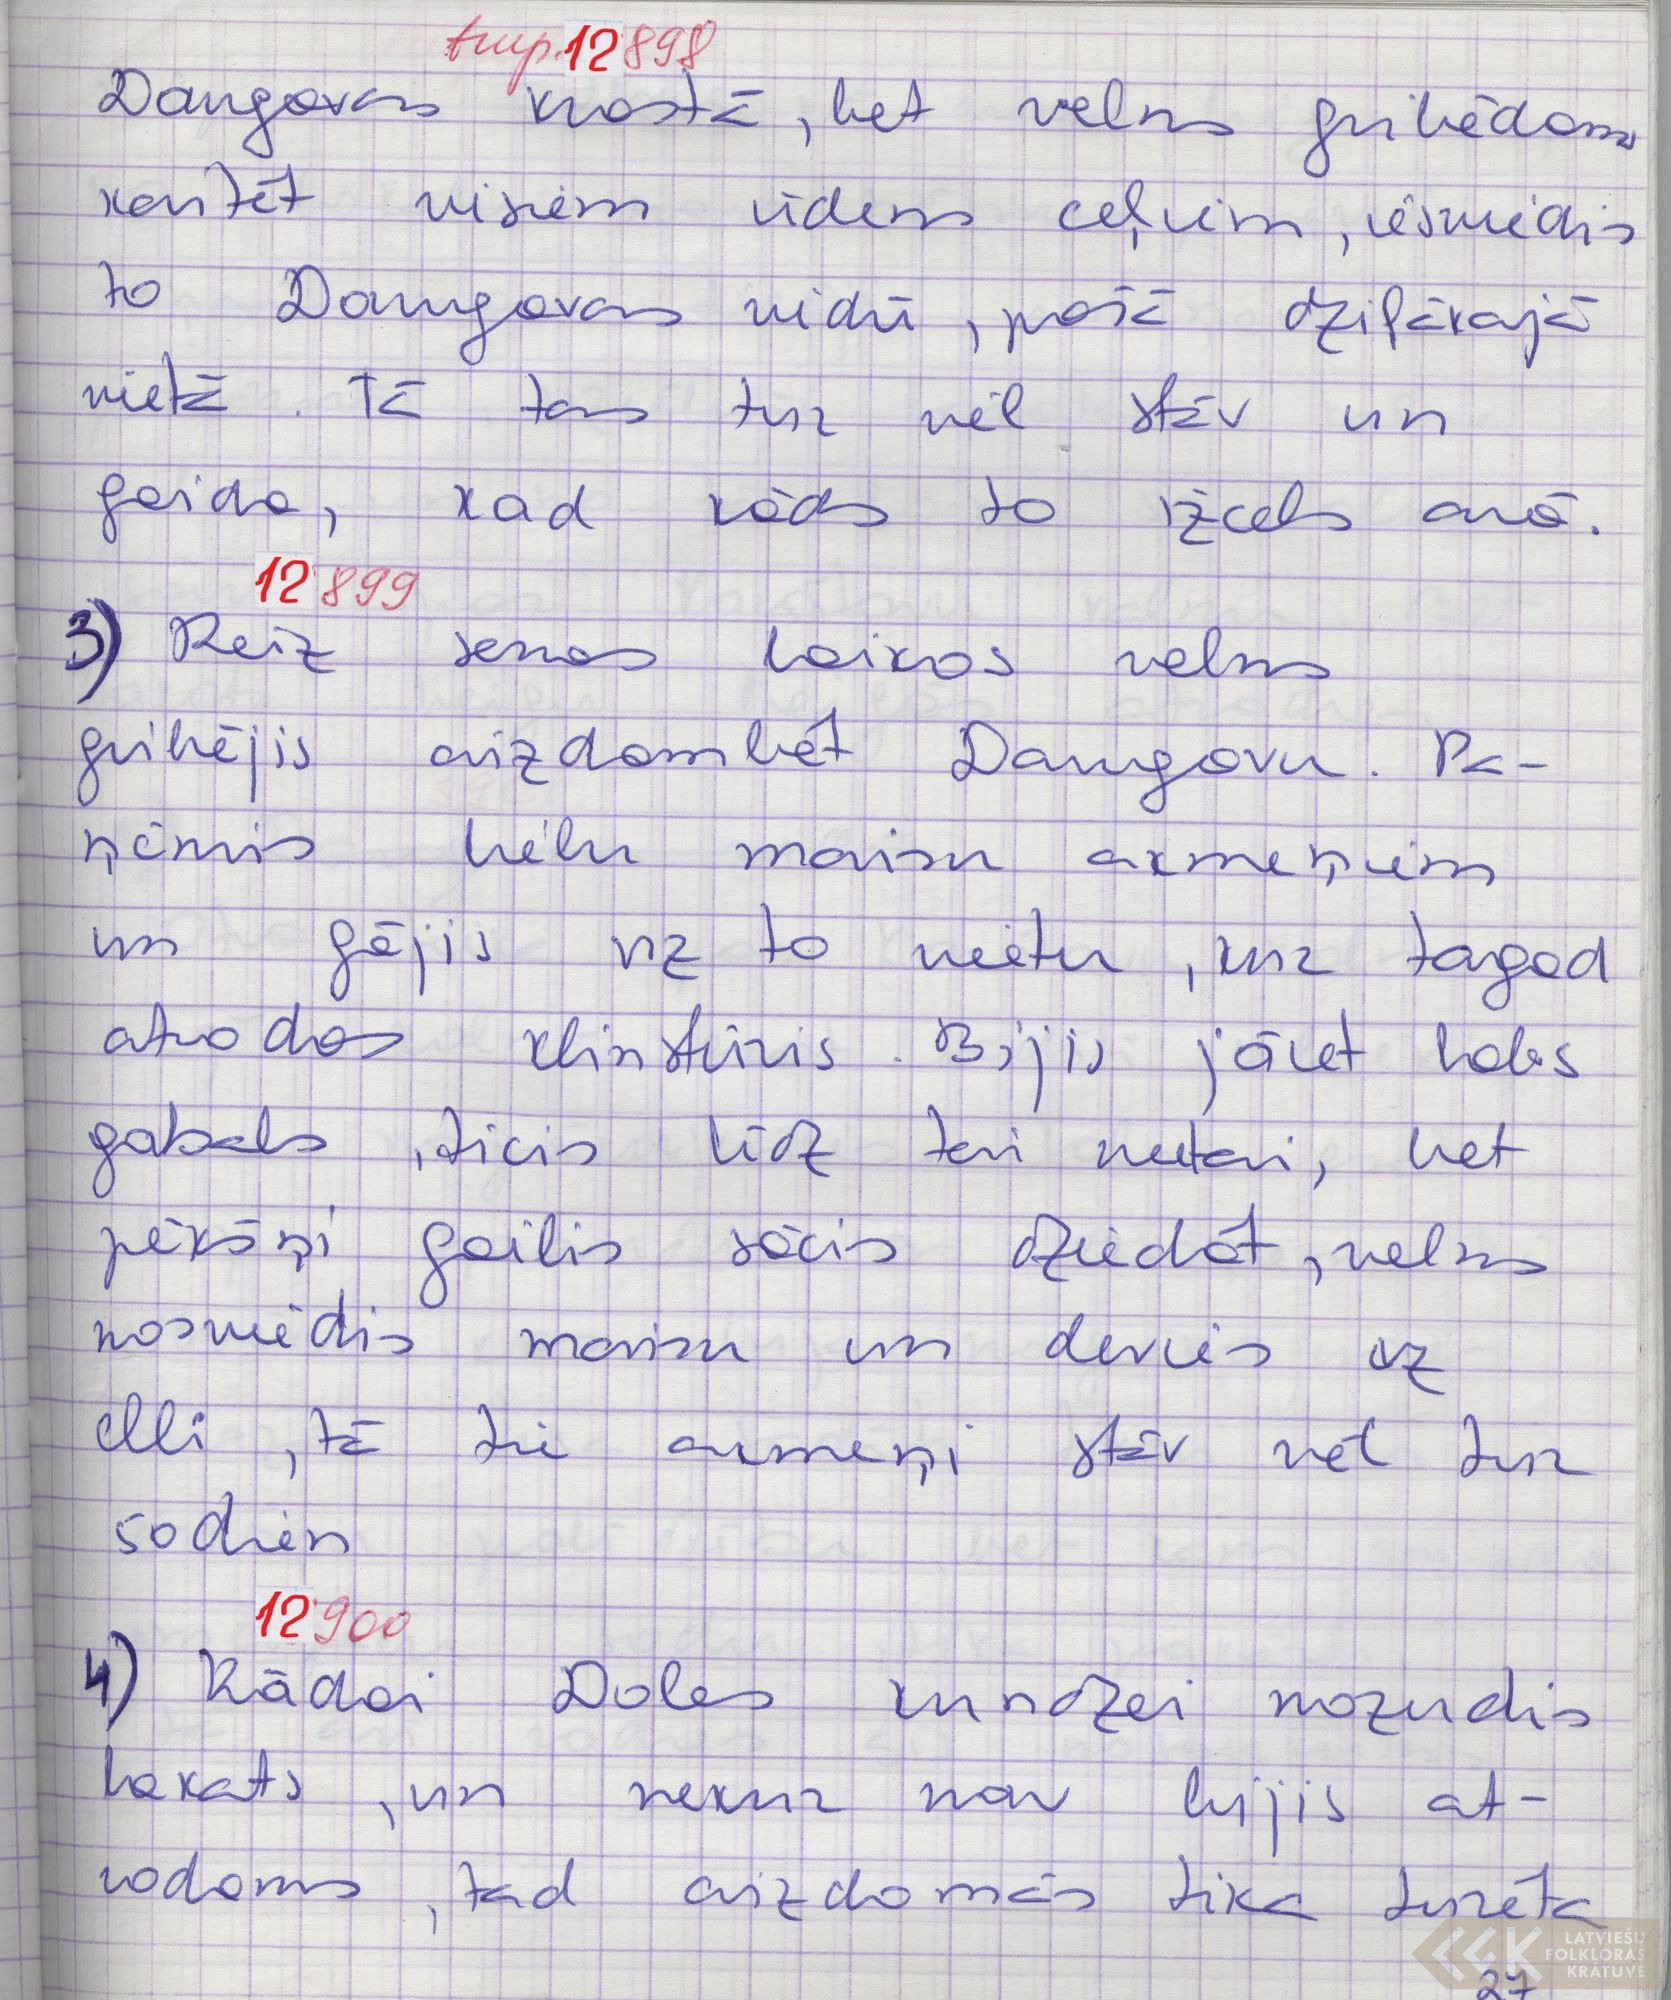 turp. 12898
Daugavas krastā, bet velns gribēdams
kaitēt visiem ūdens ceļiem, iesviedis
to Daugavas vidū, pašā dziļākajā
vietā. Tā tas tur vēl stāv un
gaida, kad kāds to izcels ārā.
12899
3) Reiz senos laikos velns
gribējis aizdambēt Daugavu. Pa-
ņēmis lielu maisu akmeņiem
un gājis uz to vietu, kur tagad
atrodas klinstūris. Bijis jāiet labs
gabals, ticis līdz tai vietai, bet
pēkšņi gailis sācis dziedāt, velns
nosviedis maisu un devies uz
elli, tā tie akmeņi stāv vēl tur
šodien
12900
4) Kādai Doles kundzei nozudis
lakats, un nekur nav bijis at-
rodams, tad aizdomās tika turēta
27
LATVIEŠU
FOLKLORAS
KRĀTUVE